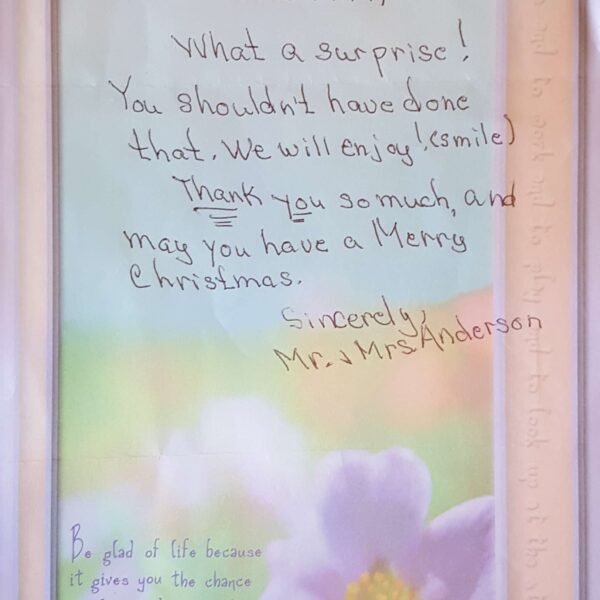 What a surprise!
You shouldn't have done
that. We will enjoy! (smile)
Thank you so much, and
may you have a Merry
Christmas.
Sincerely,
Mr. & Mrs. Anderson
Be glad of life because
it gives you the chance